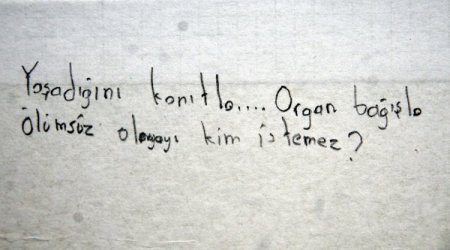 Yaşadığını kanıtla.... Organ bağışla
Ölümsüz olmayı kim istemez?